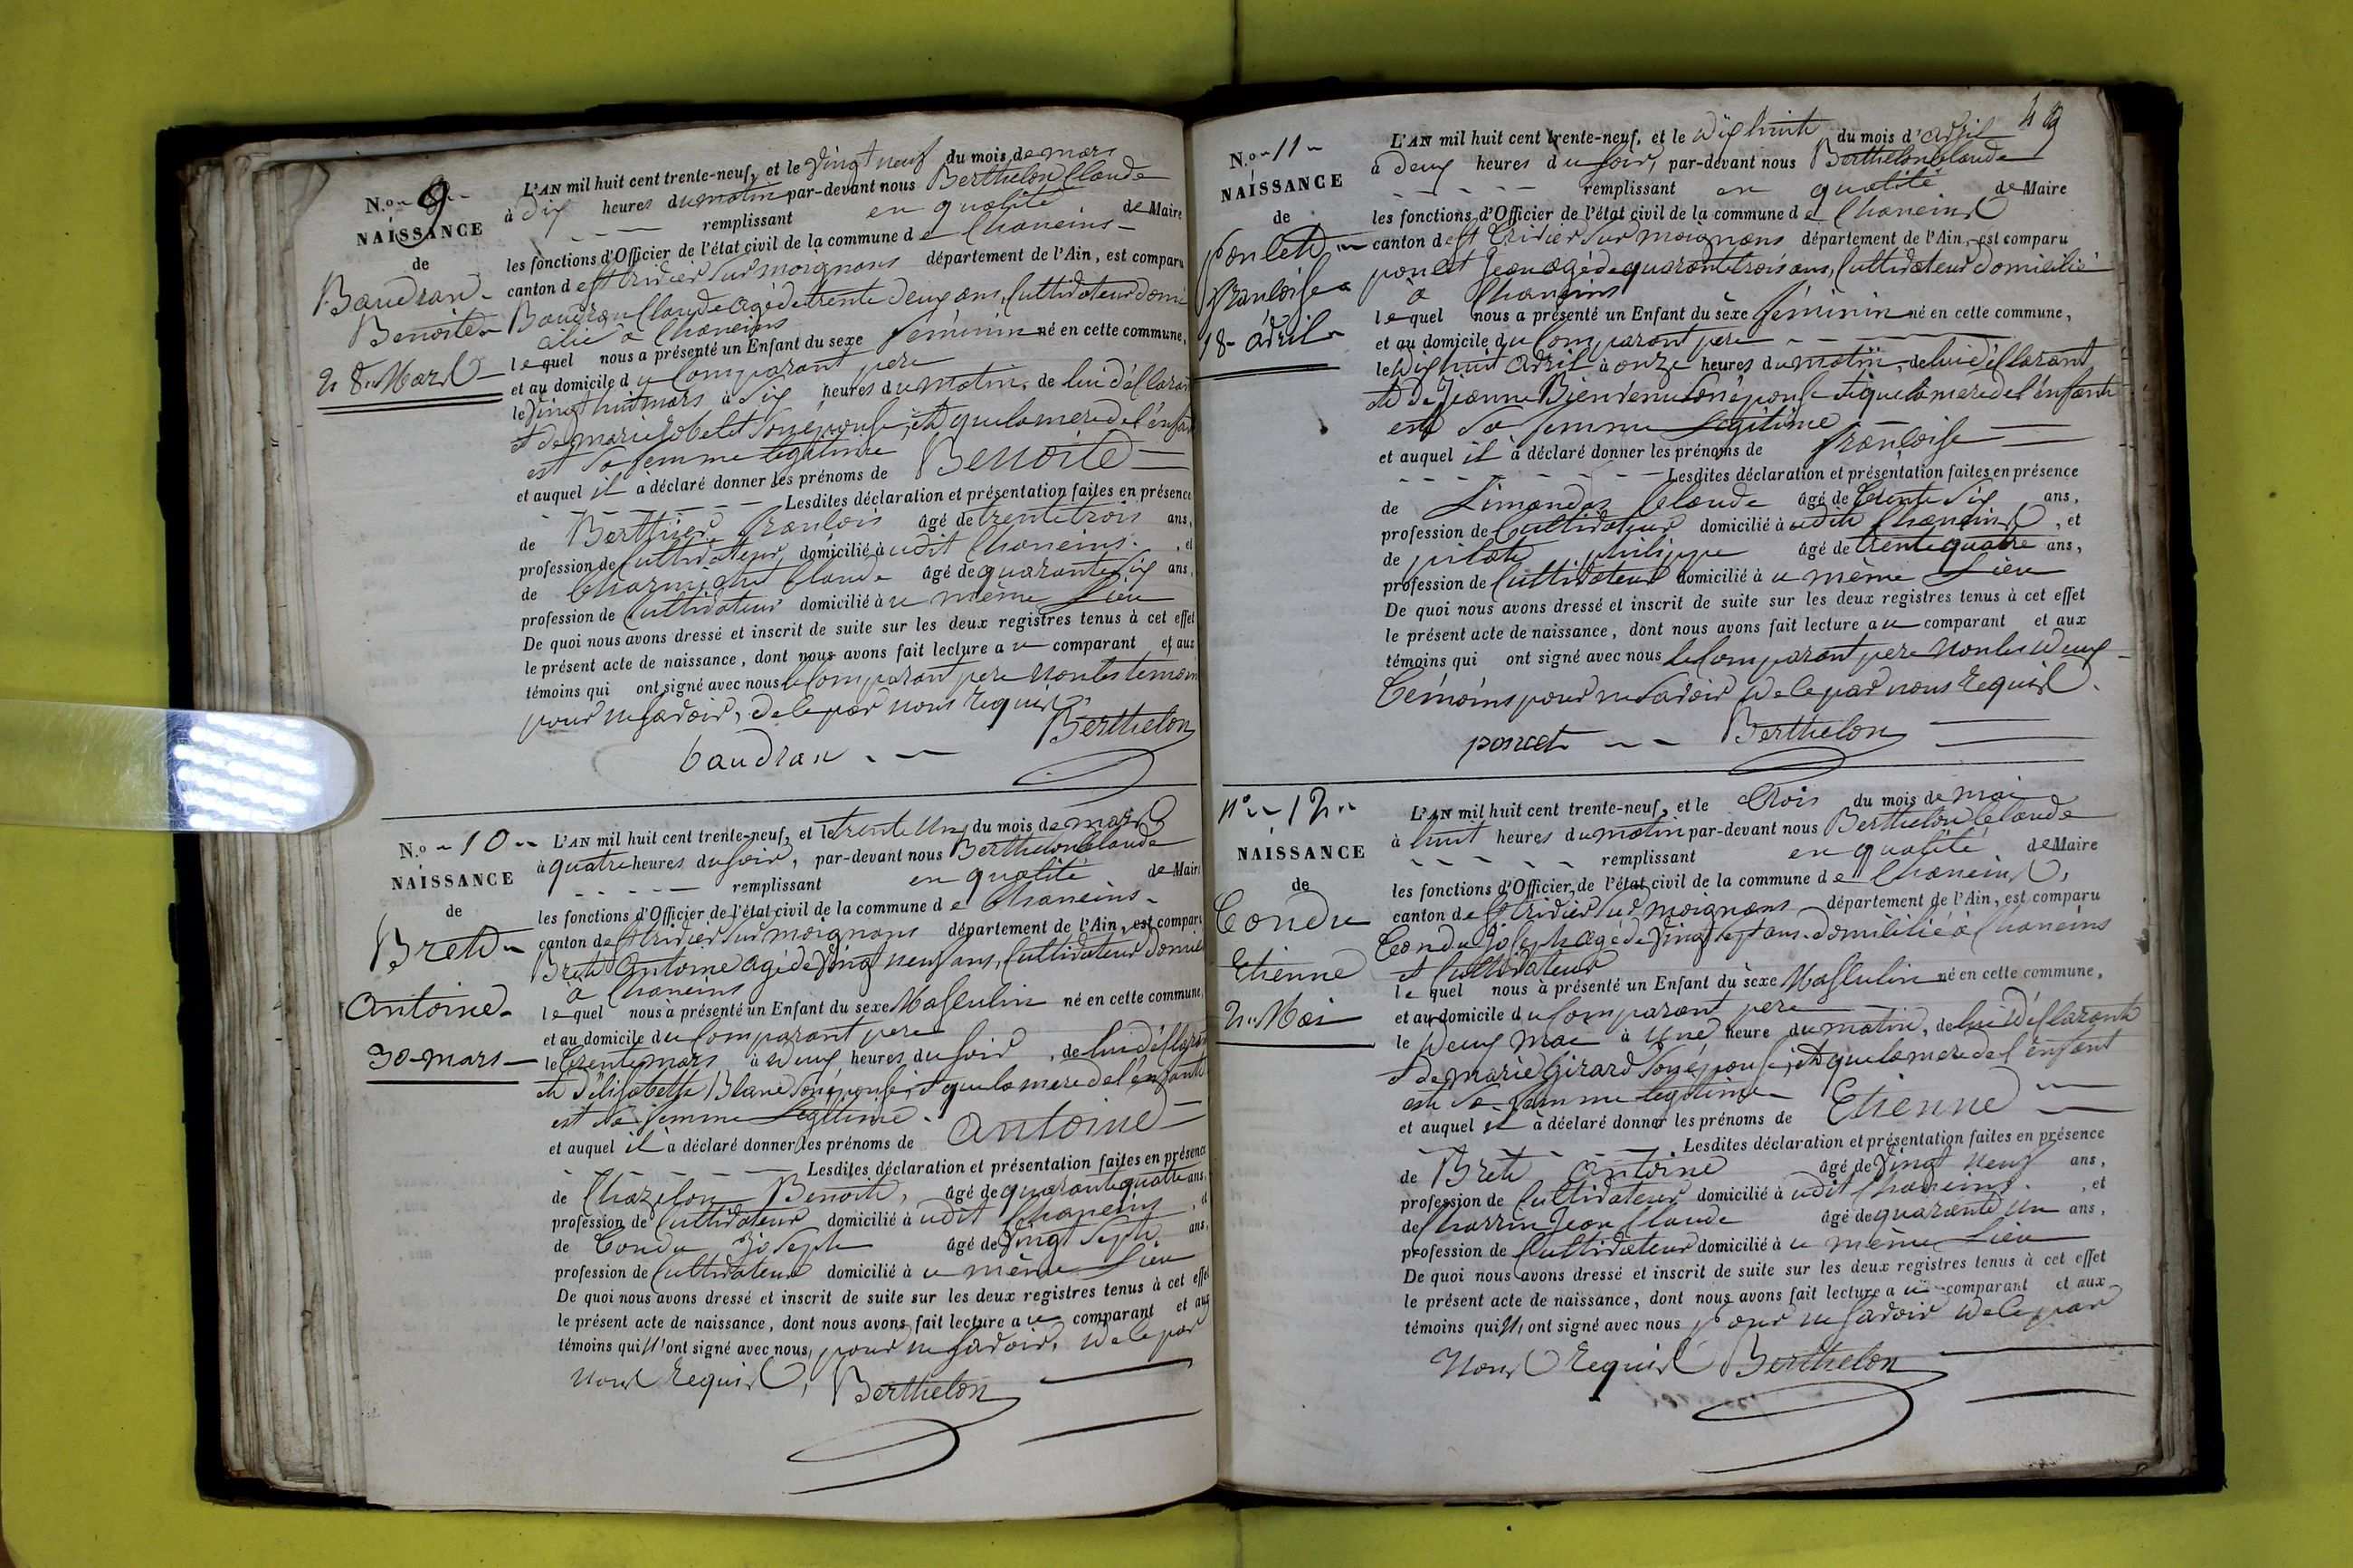 N.o 9
NAISSANCE
de
Baudran
Benoite
28 Mars
L'AN mil huit cent trente-neuf, et le vingt neuf du mois de mars
à dix heures du matin par-devant nous Berthelon Claude
remplissant en qualité de Maire
les fonctions d'Officier de l'état civil de la commune de Chaneins
canton de St tridier sur moignans département de l'Ain, est comparu
Baudran Claude agé de trente deux ans, Cultivateur domi
cilié à Chaneins
lequel nous a présenté un Enfant du sexe féminin né en cette commune,
et au domicile du Comparant père
le vingt huit mars à six heures du matin, de lui déclarant
et de marie robelet son épouse, et que la mere de l'enfant
est Sa femme légitime
et auquel il a déclaré donner les prénoms de Benoite
Lesdites déclaration et présentation faites en présence
de Berthier françois âgé de trente trois ans,
profession de Cultivateur domicilié à udit Chaneins, et
de Charmialet Claude âgé de quarante six ans,
profession de Cultivateur domicilié à u même Lieu
De quoi nous avons dressé et inscrit de suite sur les deux registres tenus à cet effet
le présent acte de naissance, dont nous avons fait lecture au comparant et aux
témoins qui ont signé avec nous le Comparant père non les temoins
pour ne Savoir, de ce par nous requis.
baudran Berthelon
N.o 10
NAISSANCE
de
Bret
Antoine
30 mars
L'AN mil huit cent trente-neuf, et le trente un du mois de mars
à quatre heures du soir, par-devant nous Berthelon Claude
remplissant en qualité de Maire
les fonctions d'Officier de l'état civil de la commune de Chaneins
canton de St tridier sur moignans département de l'Ain, est comparu
Bret Antoine agé de vingt neuf ans, Cultivateur domicil
à Chaneins
lequel nous a présenté un Enfant du sexe Masculin né en cette commune,
et au domicile du Comparant père
le trente mars à deux heures du soir, de lui déclarant
et d'élisabeth Blanc son épouse, et que la mere de l'enfant
est Sa femme Légitime
et auquel il a déclaré donner les prénoms de Antoine
Lesdites déclaration et présentation faites en présence
de Chazelon Benoit, âgé de quarante quatre ans,
profession de Cultivateur domicilié à udit Chaneins, et
de Condu joseph âgé de vingt sept ans,
profession de Cultivateur domicilié à u même Lieu
De quoi nous avons dressé et inscrit de suite sur les deux registres tenus à cet effet
le présent acte de naissance, dont nous avons fait lecture au comparant et aux
témoins qui n'ont signé avec nous, pour ne Savoir, de ce par
Nous Requis, Berthelon
49
N.o 11
NAISSANCE
de
poncet
françoise
18 avril
L'AN mil huit cent trente-neuf, et le dix huit du mois d'avril
à deux heures du soir, par-devant nous Berthelon Claude
remplissant en qualité de Maire
les fonctions d'Officier de l'état civil de la commune de Chaneins
canton de St tridier sur moignans département de l'Ain, est comparu
poncet Jean agé de quarante trois ans, Cultivateur domicilié
à Chaneins
lequel nous a présenté un Enfant du sexe féminin né en cette commune,
et au domicile du Comparant père
le dix huit avril à onze heures du matin, de lui déclarant
et de Jeanne Bienvenu son épouse et que la mere de l'enfant
est Sa femme Légitime
et auquel il a déclaré donner les prénoms de françoise
Lesdites déclaration et présentation faites en présence
de Limandas Claude âgé de trente six ans,
profession de Cultivateur domicilié à udit Chaneins, et
de pilate philippe âgé de trente quatre ans,
profession de Cultivateur domicilié à u même Lieu
De quoi nous avons dressé et inscrit de suite sur les deux registres tenus à cet effet
le présent acte de naissance, dont nous avons fait lecture au comparant et aux
témoins qui ont signé avec nous le Comparant père non les deux
témoins pour ne Savoir de ce par nous Requis.
poncet Berthelon
No 12
NAISSANCE
de
Condu
Etienne
2 Mai
L'AN mil huit cent trente-neuf, et le trois du mois de mai
à huit heures du matin par-devant nous Berthelon Claude
remplissant en qualité de Maire
les fonctions d'Officier de l'état civil de la commune de Chaneins,
canton de St tridier sur moignans département de l'Ain, est comparu
Condu joseph agé de vingt sept ans, domicilié à Chaneins
et Cultivateur
lequel nous a présenté un Enfant du sexe Masculin né en cette commune,
et au domicile du Comparant père
le deux mai à une heure du matin, de lui déclarant
et de marie Girard son épouse, et que la mere de l'enfant
est Sa femme légitime
et auquel il a déclaré donner les prénoms de Etienne
Lesdites déclaration et présentation faites en présence
de Bret Antoine âgé de vingt neuf ans,
profession de Cultivateur domicilié à udit Chaneins, et
de Charrin Jean Claude âgé de quarante un ans,
profession de Cultivateur domicilié à u même Lieu
De quoi nous avons dressé et inscrit de suite sur les deux registres tenus à cet effet
le présent acte de naissance, dont nous avons fait lecture au comparant et aux
témoins qui n'ont signé avec nous pour ne Savoir de ce par
Nous Requis Berthelon